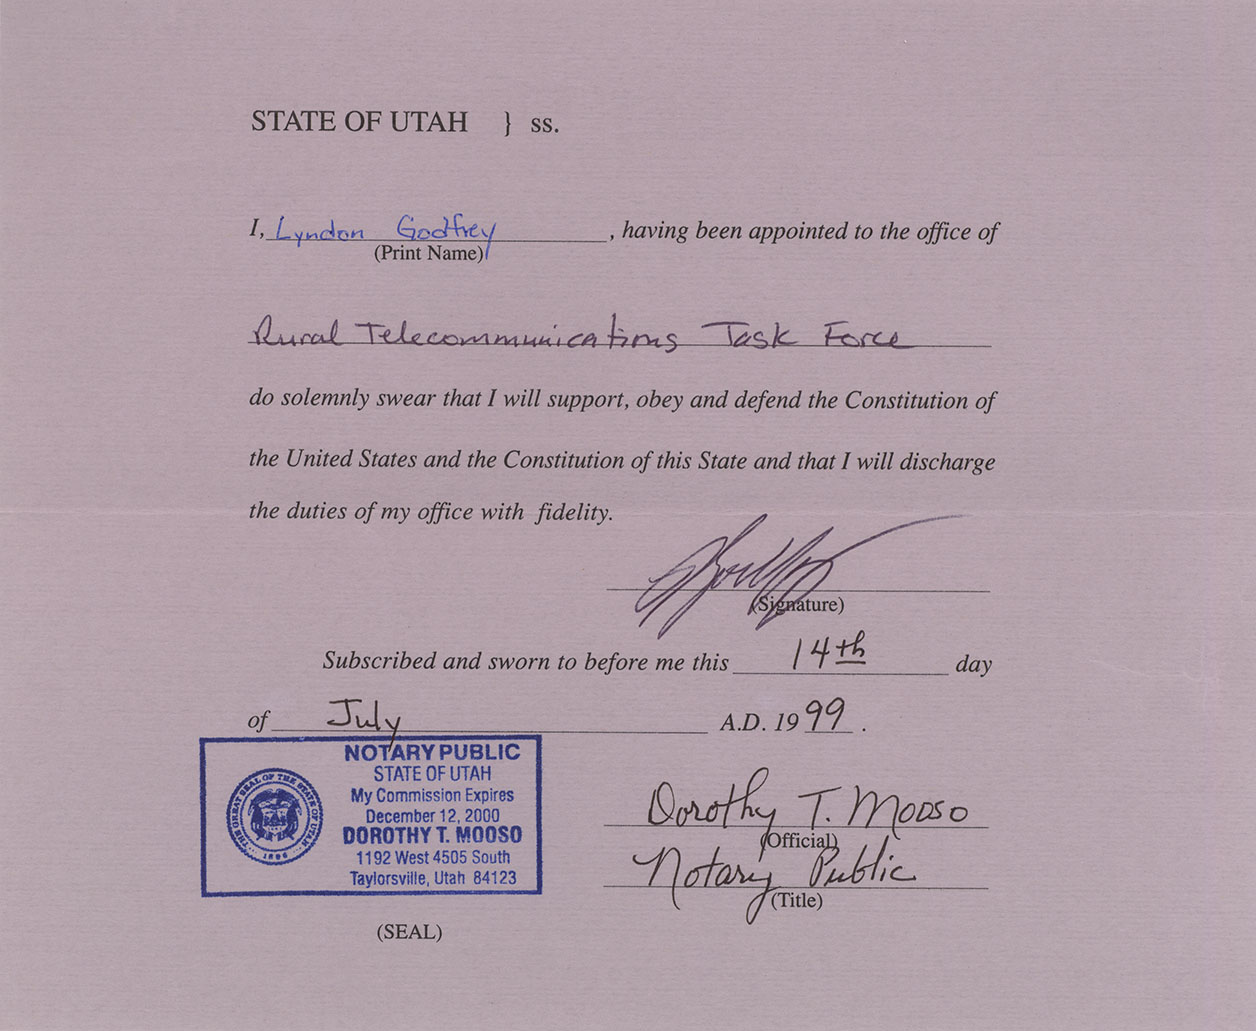 STATE OF UTAH } ss.
I, Lyndon Godfrey, having been appointed to the office of
(Print Name)
Rural Telecommunications Task Force
do solemnly swear that I will support, obey and defend the Constitution of
the United States and the Constitution of this State and that I will discharge
the duties of my office with fidelity.
(Signature)
Subscribed and sworn to before me this 14th day
of July A.D. 1999.
NOTARY PUBLIC
STATE OF UTAH
My Commission Expires
December 12, 2000
DOROTHY T. MOOSO
1192 West 4505 South
Taylorsville, Utah 84123
THE GREAT SEAL OF THE STATE OF UTAH
1896
(SEAL)
Dorothy T. Mooso
(Official)
Notary Public
(Title)